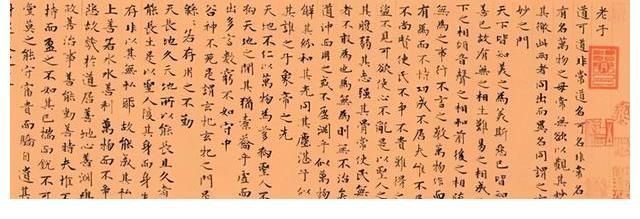 老子
道可道非常道名可名非常名
有名萬物之母常無欲以觀其妙
其徼此兩者同出而異名同謂之
妙之門
天下皆知美之為美斯惡已皆知
善已故有無之相生難易之相成
下之相傾音聲之相和前後之相
無為之事行不言之教萬物作而
有為而不恃功成不居夫唯不居
不尚賢使民不爭不貴難得之
盜不見可欲使心不亂是以聖人
其腹弱其志強其骨常使民無
者不敢為也為無為則無不治矣
沖而用之或不盈淵乎似萬物
解其紛和其光同其塵湛乎似
其誰之子象帝之先
天地不仁以萬物為芻狗聖人不
狗天地之間其猶橐籥乎虛而
出多言數窮不如守中
谷神不死是謂玄牝玄牝之門是
綿若存用之不勤
天長地久天地所以能長且久者
能長生是以聖人後其身而身
存非以其無私耶故能成其私
上善若水水善利萬物而不爭
惡故幾於道居善地心善淵
政善治事善能動善時夫惟不
持而盈之不如其已揣而銳不可
堂莫之能守富貴而驕自遺其